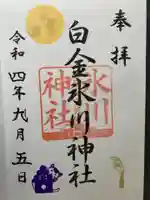 奉拝
白金氷川神社
氷川神社
令和四年九月五日